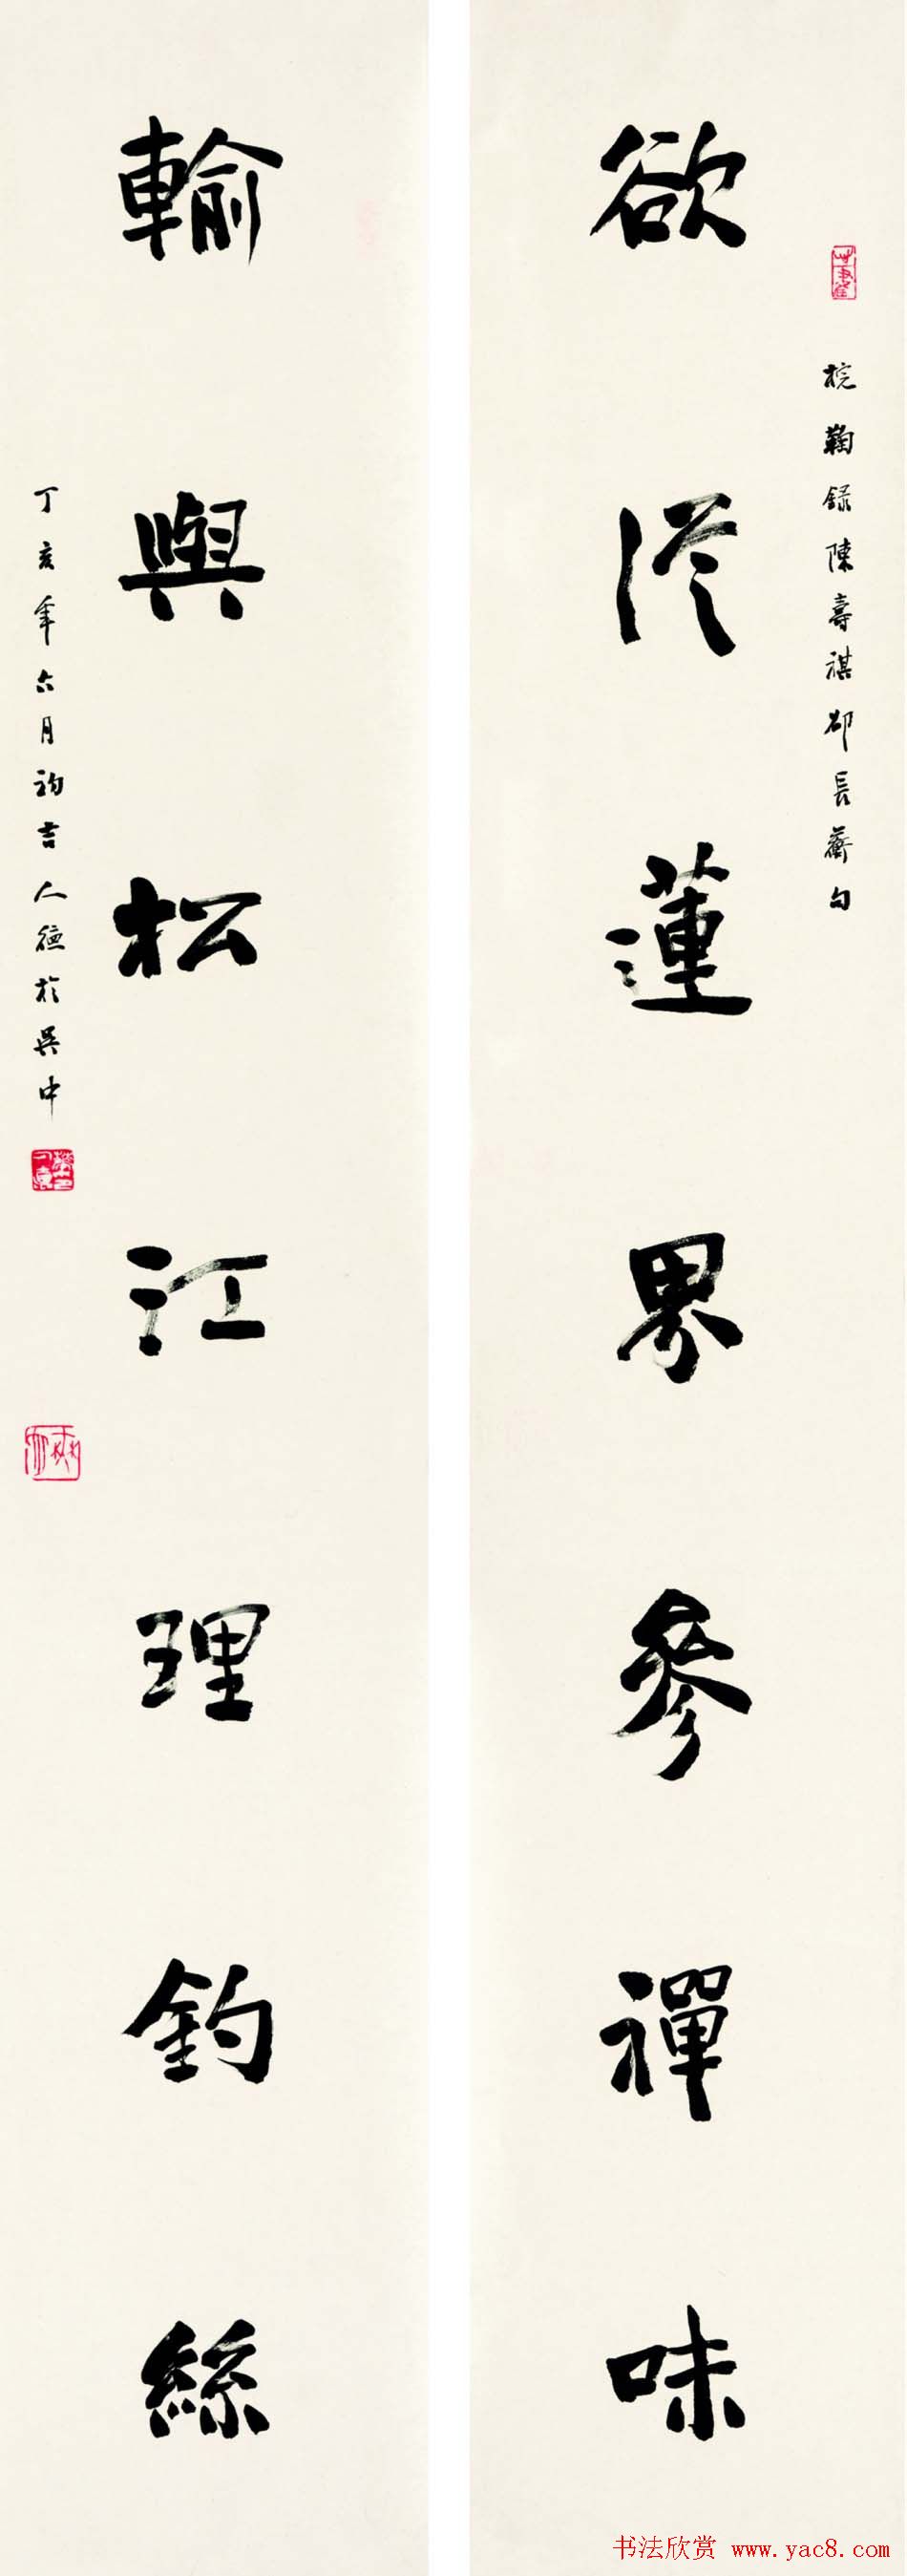 欲從蓮界參禪味
梡鞠錄陳壽祺邵長蘅句
輸與松江理釣絲
丁亥年六月初吉人德於吳中
书法欣赏 www.yac8.com